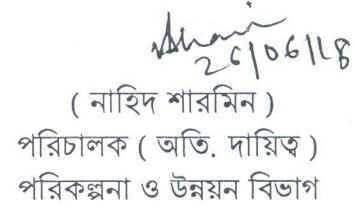 26/06/18
( নাহিদ শারমিন )
পরিচালক ( অতি. দায়িত্ব )
পরিকল্পনা ও উন্নয়ন বিভাগ